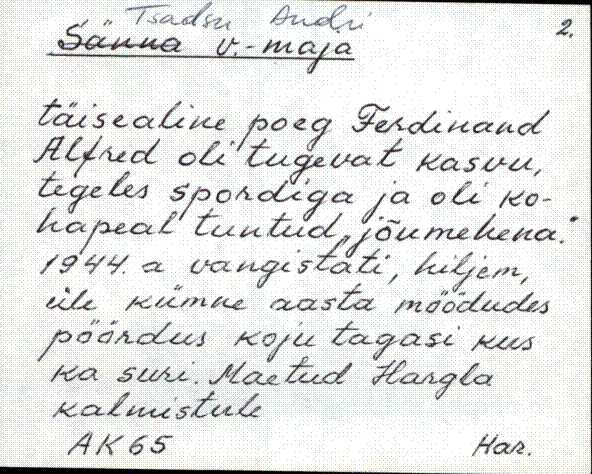 Tsadsu Andri
2.
Sänna v.-maja
täisealine poeg Ferdinand
Alfred oli tugevat kasvu,
tegeles spordiga ja oli ko-
hapeal tuntud „jõumehena."
1944. a vangistati, hiljem,
üle kümne aasta möödudes
pöördus koju tagasi kus
ka suri. Maetud Hargla
kalmistule
AK 65
Har.